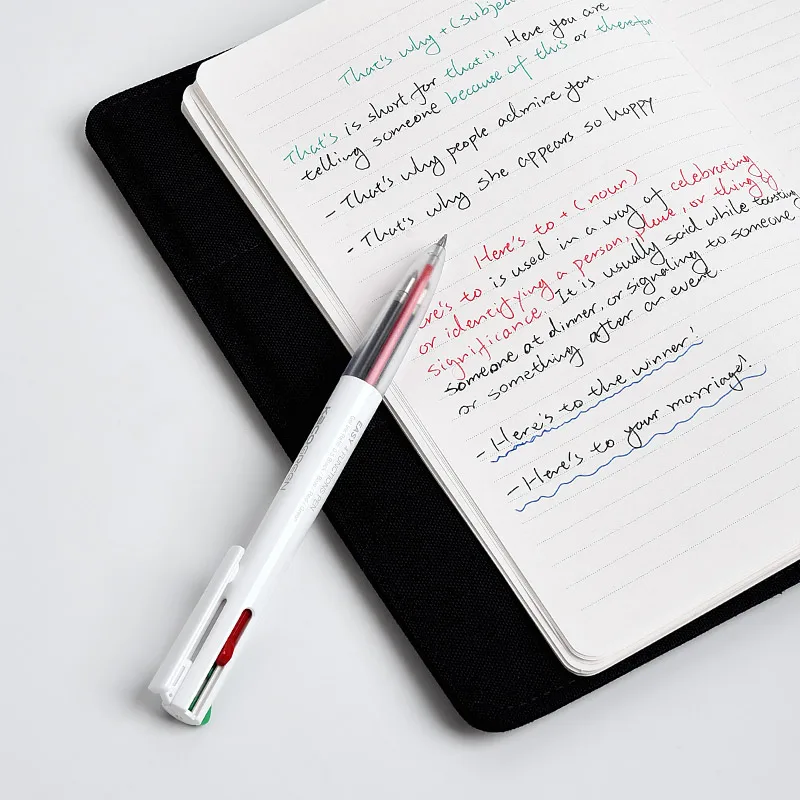 That's why + (Subject
That's is short for that is. Here you are
telling someone because of this or therefor
- That's why people admire you.
- That's why she appears so happy
Here's to + (noun)
re's to is used in a way of celebrating
or identifying a person, place, or thing of
significance. It is usually said while toasting
someone at dinner, or signaling to someone
or something after an event.
- Here's to the winner!
- Here's to your marriage!
KACOGREEN
EASY FUNCTIONS PEN